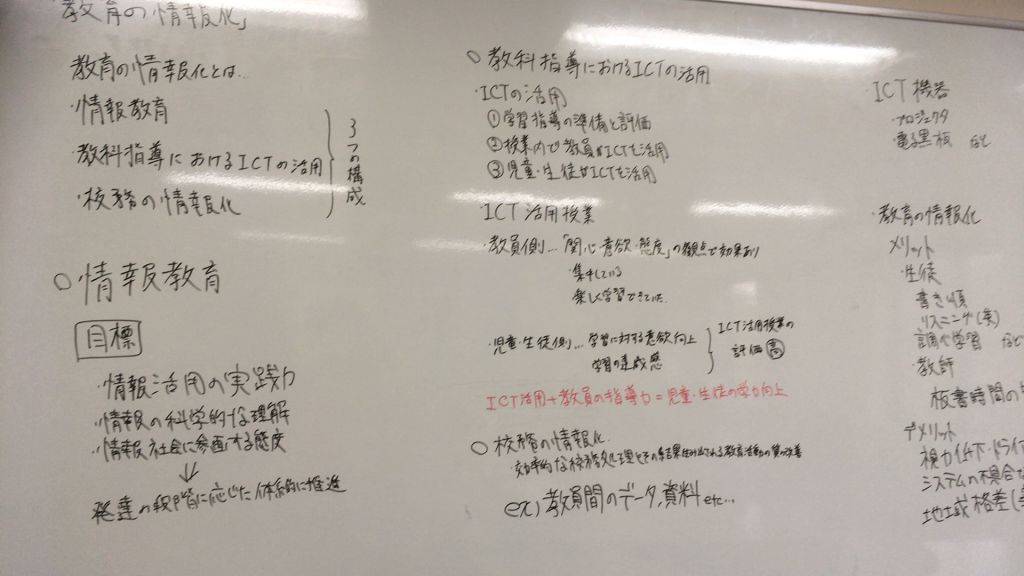 「教育の情報化」
教育の情報化とは…
・情報教育
・教科指導におけるICTの活用
・校務の情報化
3つの構成
○情報教育
目標
・情報活用の実践力
・情報の科学的な理解
・情報社会に参画する態度
↓
発達の段階に応じた体系的に推進
○教科指導におけるICTの活用
・ICTの活用
①学習指導の準備と評価
②授業内で教員がICTを活用
③児童・生徒がICTを活用
・ICT活用授業
・教員側…「関心・意欲・態度」の観点で効果あり
・集中している
・楽しく学習できていた
・児童・生徒側…学習に対する意欲向上
学習の達成感
ICT活用授業の
評価高
ICT活用+教員の指導力=児童・生徒の学力向上
○校務の情報化
・効率的な校務処理とその結果生み出される教育活動の質の改善
ex)教員間のデータ,資料etc…
ICT機器
・プロジェクタ
電子黒板 など
・教育の情報化
メリット
・生徒
書き順
リスニング(英)
調べ学習 など
・教師
板書時間の
デメリット
視力低下・ドライ
システムの不具合
地域格差(